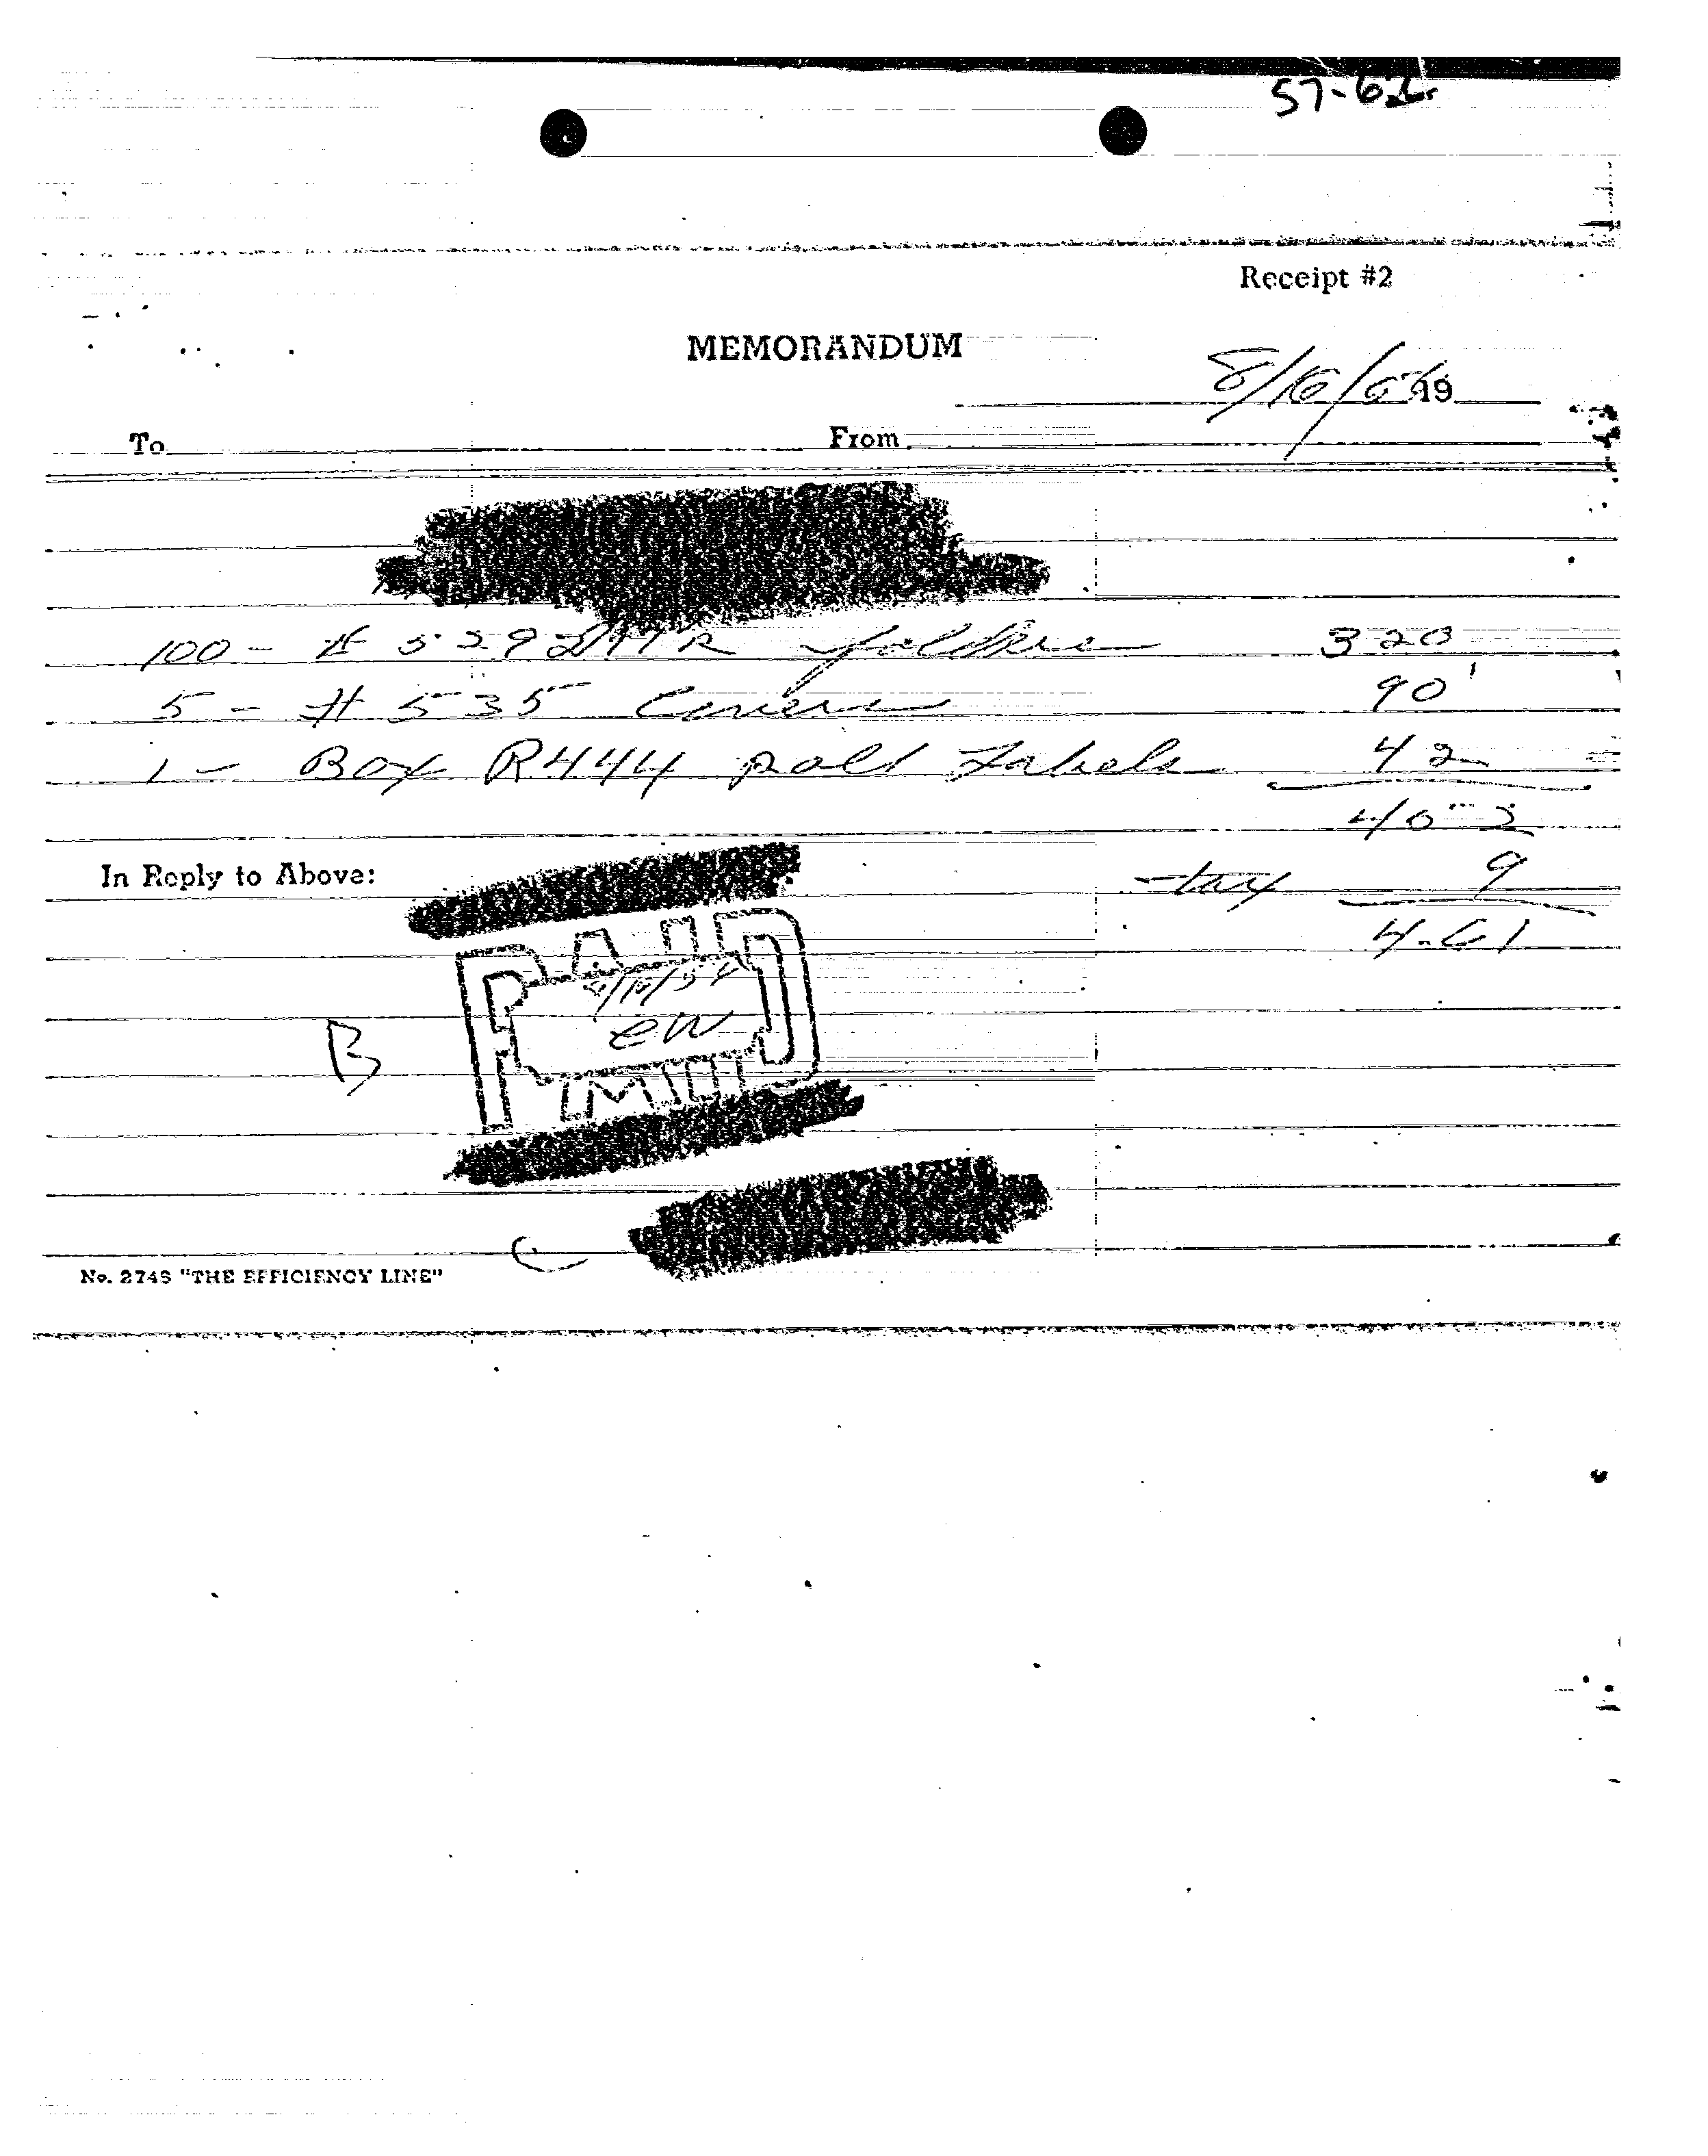 57-62
Receipt #2
MEMORANDUM
8/16/54 19
To From
100 - # 5292 folders 320
5 - # 535 Covers 90
1 - Box R444 roll Labels 42
4 52
In Reply to Above: tax 9
4.61
PAID
8/16/54
EW
B
No. 274S "THE EFFICIENCY LINE"